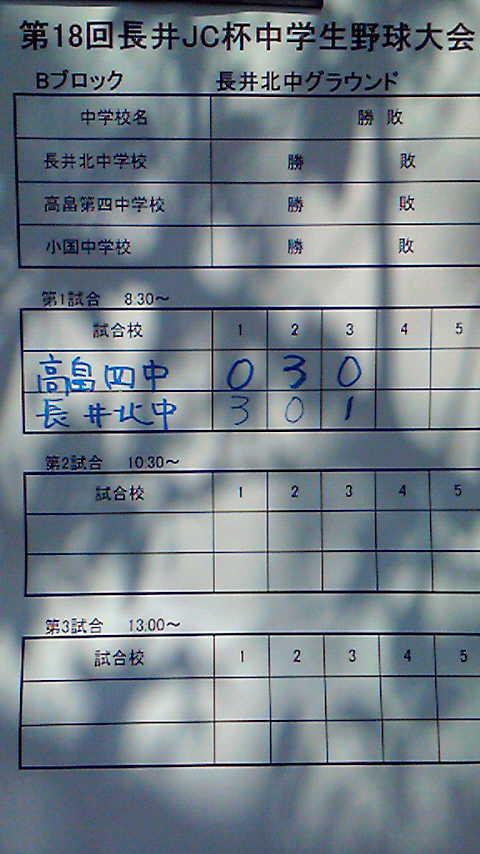 第18回長井JC杯中学生野球大会
Bブロック 長井北中グラウンド
中学校名 勝 敗
長井北中学校 勝 敗
高畠第四中学校 勝 敗
小国中学校 勝 敗
第1試合 8.30～
試合校 1 2 3 4 5
高畠四中 0 3 0
長井北中 3 0 1
第2試合 10.30～
試合校 1 2 3 4 5
第3試合 13.00～
試合校 1 2 3 4 5